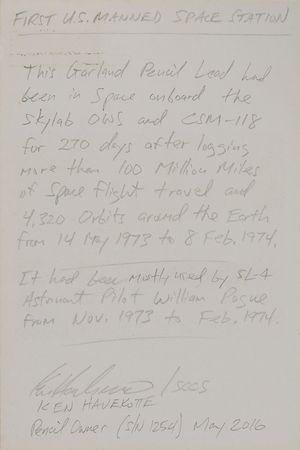 FIRST U.S. MANNED SPACE STATION
This Garland Pencil Lead had
been in Space onboard the
Skylab OWS and CSM-118
for 270 days after logging
more than 100 Million Miles
of Space flight travel and
4,320 Orbits around the Earth
from 14 May 1973 to 8 Feb. 1974.
It had been mostly used by SL-4
Astronaut Pilot William Pogue
from Nov. 1973 to Feb. 1974.
KEN HAVEKOTTE
Pencil Owner (S/N 1254) May 2016